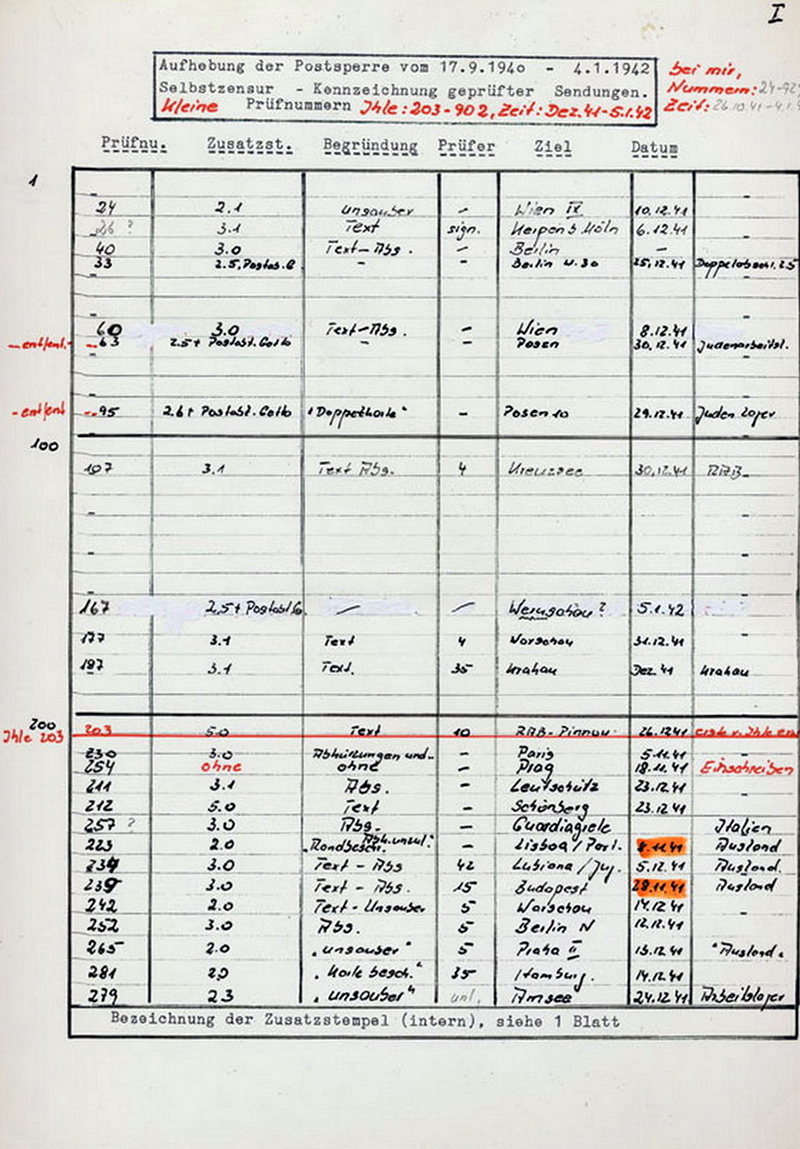 I
Aufhebung der Postsperre vom 17.9.1940 - 4.1.1942
Selbstzensur - Kennzeichnung geprüfter Sendungen.
Kleine Prüfnummern Ihle: 203-902, Zeit: Dez. 41-5.1.42
bei mir,
Nummern: 24-92
Zeit: 26.10.41-4.1.4
Prüfnu. Zusatzst. Begründung Prüfer Ziel Datum
1
24 2.1 unsauber - Wien IX 10.12.41
26 ? 3.1 Text sign. Kerpen b. Köln 6.12.41
40 3.0 Text-Abs. - Berlin -
33 2.5, Postas. G - - Berlin W. 30 25.12.41
60 3.0 Text-Abs. - Wien 8.12.41
- entfent. 63 2.5+ Postabst. Gotb - Posen 30.12.41 Judenarbeitsl.
- entfent 95 2.6+ Postabst. Gotb "Doppelkarte" - Posen 10 29.12.41 Juden lager
100
107 3.1 Text Abs. 4 Kreuzsee 30.12.41 RAB
167 2,5+ Postabst. - - 5.1.42
177 3.1 Text 4 Warschau 31.12.41
187 3.1 Text. 35 Krakau Dez. 41 Krakau
200
Ihle 203 203 5.0 Text 10 RAB-Pinnow 26.12.41
230 3.0 Abkürzungen und- - Paris 5.11.41
254 ohne ohne - Prag 18.11.41 Einschreiben
211 3.1 Abs. - Leutschütz 23.12.41
212 5.0 Text - Schönberg 23.12.41
257 ? 3.0 Abs. - Guardiagrele Italien
223 2.0 "Randbesch. Abk. unzul." - Lisboa/Port. 8.11.41 Ausland
234 3.0 Text - Abs 42 Lubiana/Jug. 5.12.41 Ausland.
239 3.0 Text - Abs. 15 Budapest 28.11.41 Ausland
242 2.0 Text-Unsauber 5 Warschau 14.12.41 -
252 3.0 Abs. 5 Berlin N 12.12.41
265 2.0 "unsauber" 5 Praha II 13.12.41 "Ausland"
281 2,0 "Karte besch." 35 Hamburg. 14.12.41
279 2.3 "unsauber" unl. Amsee 24.12.41 Arbeitslager
Bezeichnung der Zusatzstempel (intern), siehe 1 Blatt